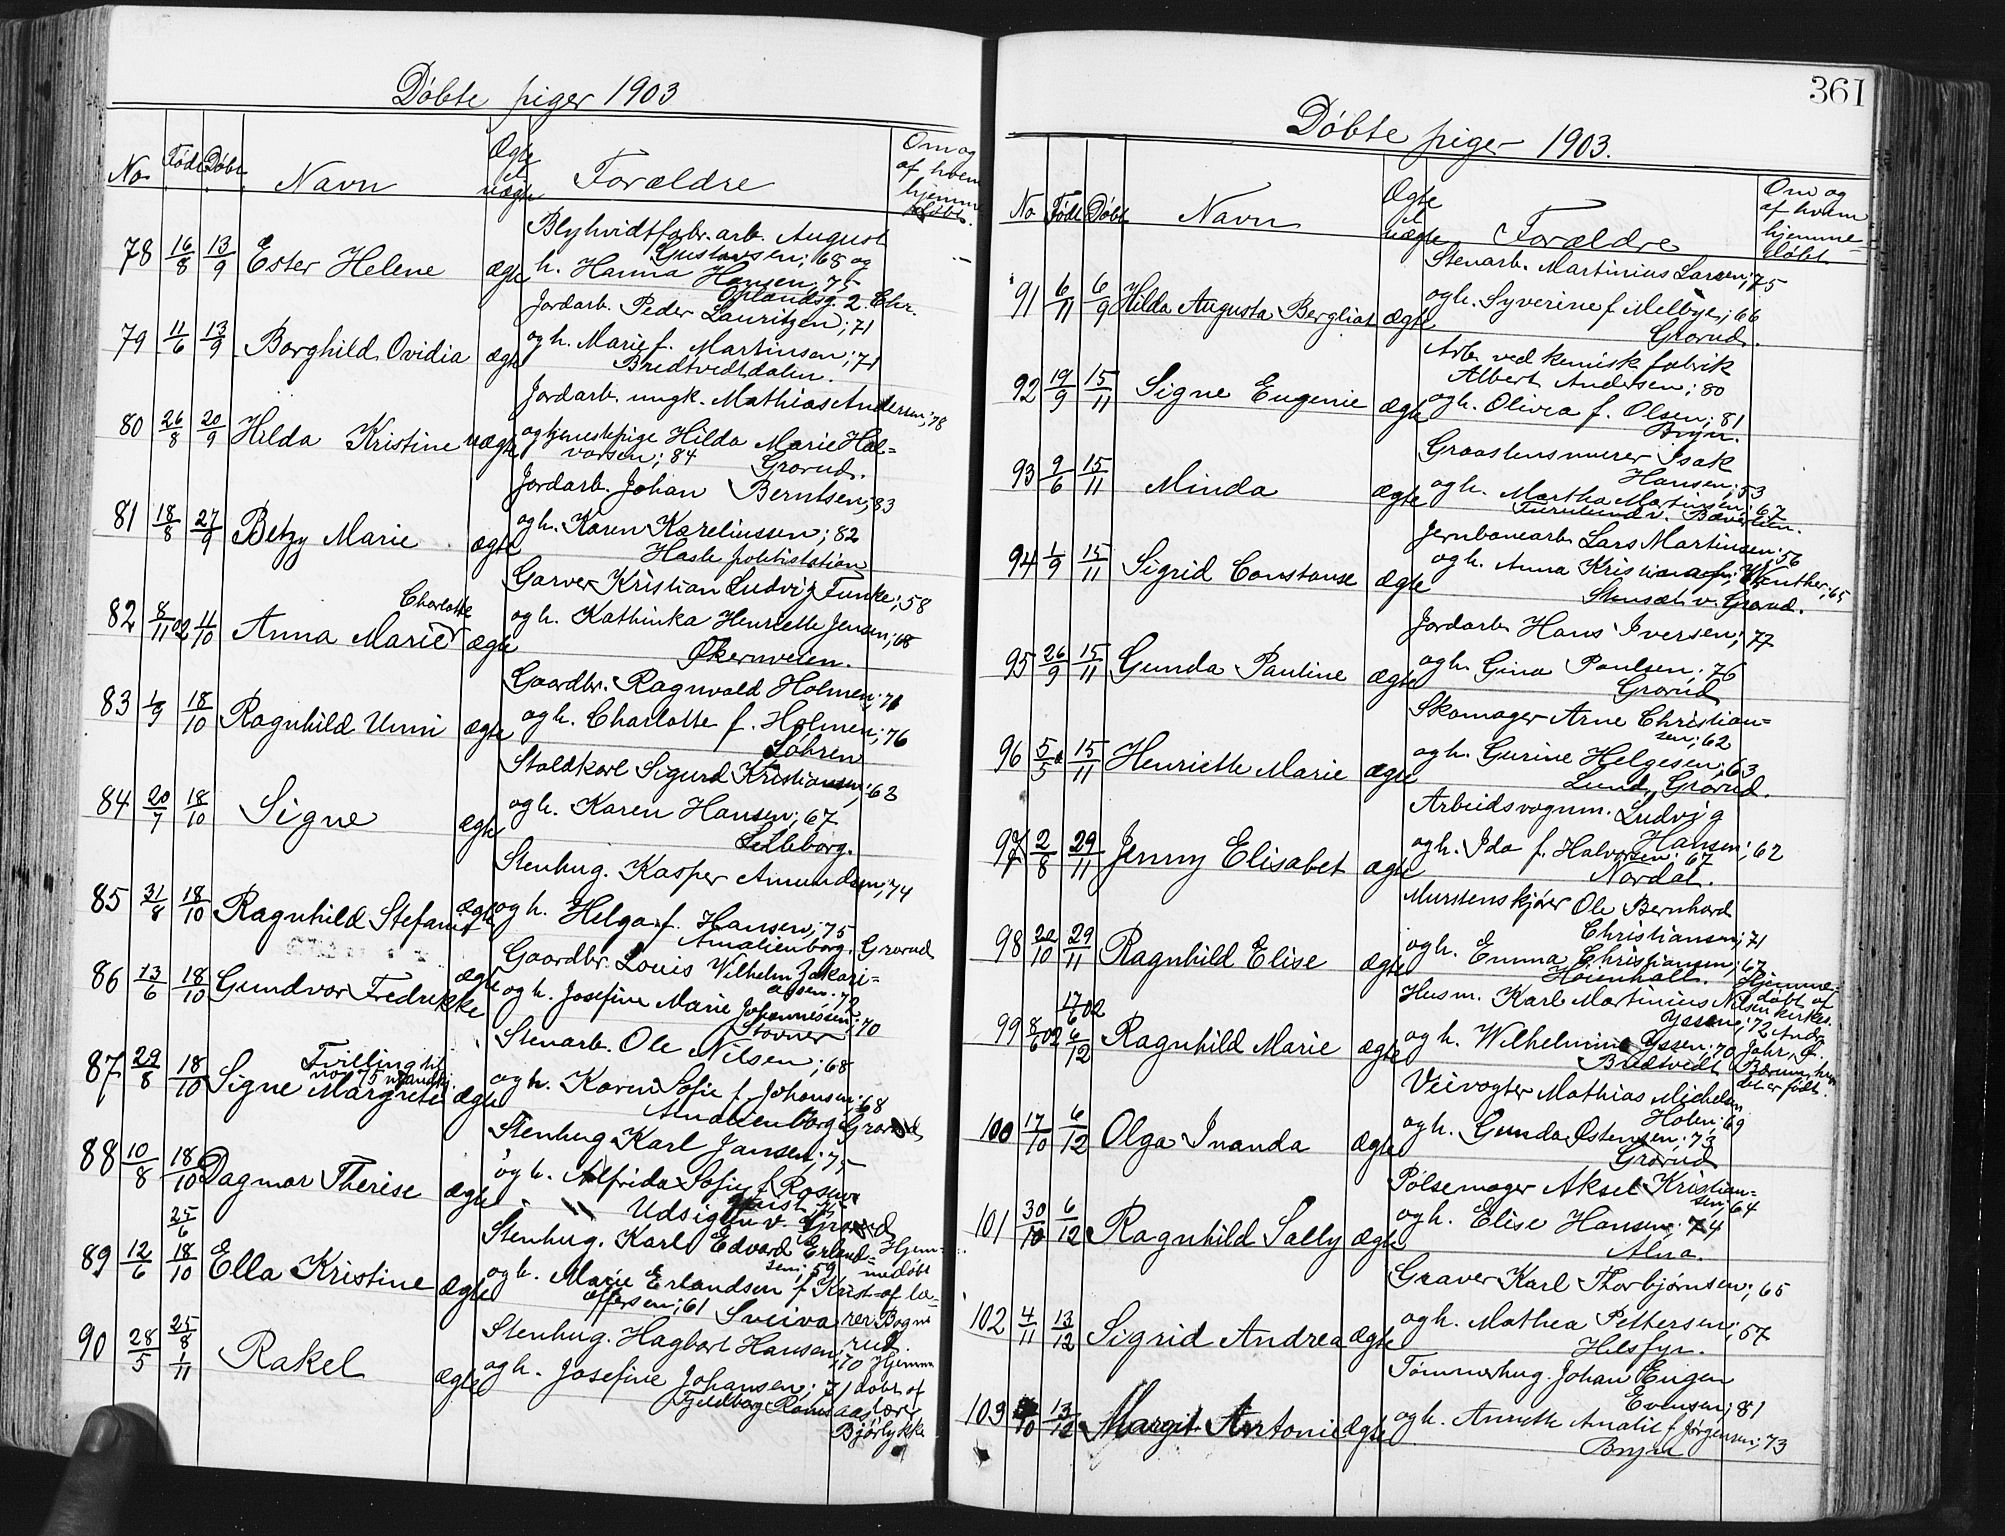 Døbte piger 1903
No Født Døbt Navn Ægte el uægte Forældre Om og af hvem hjemme døbt.
78 16/8 13/9 Ester Helene ægte Blyhvidtfabr. arb. August
Gustavsen; 68 og
h. Hanna Hansen, 75
Oplandsg. 2. Chr.
79 11/6 13/9 Borghild Ovidia ægte Jordarb. Peder Lauritzen; 71
og h. Marie f. Martinsen; 71
Bredtvedtdalen.
80 26/8 20/9 Hilda Kristine uægte Jordarb. ungk. Mathias Andersen; 78
og tjenestepige Hilda Marie Hal-
vorsen; 84 Grorud.
81 18/8 27/9 Betzy Marie ægte Jordarb. Johan Berntsen; 83
og h. Karen Kareliussen; 82
Hasle politistation
82 8/11 02 4/10 Anna Marie Charlotte ægte Garver Kristian Ludvig Funke; 58
og h. Kathinka Henriette Jensen; 68
Økernveien.
83 1/9 18/10 Ragnhild Unni ægte Gaardbr. Ragnvald Holmen; 71
og h. Charlotte f. Holmen; 76
Løhren
84 20/7 18/10 Signe ægte Staldkarl Sigurd Kristiansen; 63
og h. Karen Hansen; 67
Lilleborg.
85 31/8 18/10 Ragnhild Stefanie ægte Stenhug. Kasper Amundsen; 74
og h. Helga f. Hansen; 75
Amalienborg, Grorud
86 13/6 18/10 Gundvor Fredrikke ægte Gaardbr. Louis Wilhelm Zakari-
assen. 72
og h. Josefine Marie Johannessen; 70
Stovner
87 29/8 18/10 Signe Margrete ægte Tvilling til
no. 75 mandkj.
Stenarb. Ole Nilsen; 68
og h. Karen Sofie f. Johansen; 68
Amalienborg Grorud
88 10/8 18/10 Dagmar Therese ægte Stenhug Karl Jansen; 75
og h. Alfrida Sofie f. Rosen-
Udsigten v. Grorud
89 12/6 25/6 18/10 Ella Kristine ægte Stenhug. Karl Edvard Erland-
sen; 59
og h. Marie Erlandsen f. Krist-
offersen; 61 Sveiva
Hjem-
medøbt
af læ-
rer Bogne
rud.
90 28/5 25/8 1/11 Rakel ægte Stenhug. Hagbart Hansen; 70
og h. Josefine Johansen; 71
Fjeldborg Romsaas
Hjemme
døbt af
lærer
Bjørlykke
361
Døbte piger 1903.
No Født Døbt Navn Ægte el uægte Forældre Om og af hvem hjemme- døbt.
91 6/11 6/9 Hilda Augusta Bergliot ægte Stenarb. Martinius Larsen; 75
og h. Syverine f. Melbye; 66
Grorud.
92 19/9 15/11 Signe Eugenie ægte Arb. ved kemisk fabrik
Albert Andersen; 80
og h. Olivia f. Olsen; 81
Bryn.
93 9/6 15/11 Minda ægte Graastensmurer Isak
Hansen; 53
og h. Martha Martinsen; 67
Furulund v. Bæverlien.
94 1/9 15/11 Sigrid Constanse ægte Jernbanearb. Lars Martinsen; 56
og h. Anna Kristiana f. Winther; 65
Stensæt v. Grorud.
95 26/9 15/11 Gunda Pauline ægte Jordarb. Hans Iversen; 77
og h. Gina Paulsen; 76
Grorud
96 5/5 15/11 Henriette Marie ægte Skomager Arne Christian-
sen; 62
og h. Gurine Helgesen; 63
Lund, Grorud.
97 2/8 29/11 Jenny Elisabet ægte Arbeidsvognm. Ludvig
Hansen; 62
og h. Ida f. Halvorsen; 67
Nordal.
98 20/10 29/11 Ragnhild Elise ægte Murstenskjører Ole Bernhard
Christiansen; 71
og h. Emma Christiansen; 67
Heimhall.
99 8/6 02 17/6 02 6/12 Ragnhild Marie ægte Husm. Karl Martinius Nilsen
Yssen; 72
og h. Wilhelmine Yssen; 70
Bredtvedt
Hjemme-
døbt af
kirkes.
Andr.
Johr. i
Bærum, hvor
det er født.
100 17/10 6/12 Olga Inanda ægte Veivogter Mathias Michelsen
Holen; 69
og h. Gunda Østensen; 73
Grorud
101 30/10 6/12 Ragnhild Sally ægte Pølsemager Aksel Kristian-
sen; 64
og h. Elise Hansen. 74
Alna.
102 4/11 13/12 Sigrid Andrea ægte Graver Karl Thorbjørnsen; 65
og h. Mathea Pettersen; 57
Helsfyr.
103 /10 13/12 Margit Antonie ægte Tømmerhug. Johan Eugen
Evensen; 81
og h. Anette Amalie f. Jørgensen; 73
Bryn